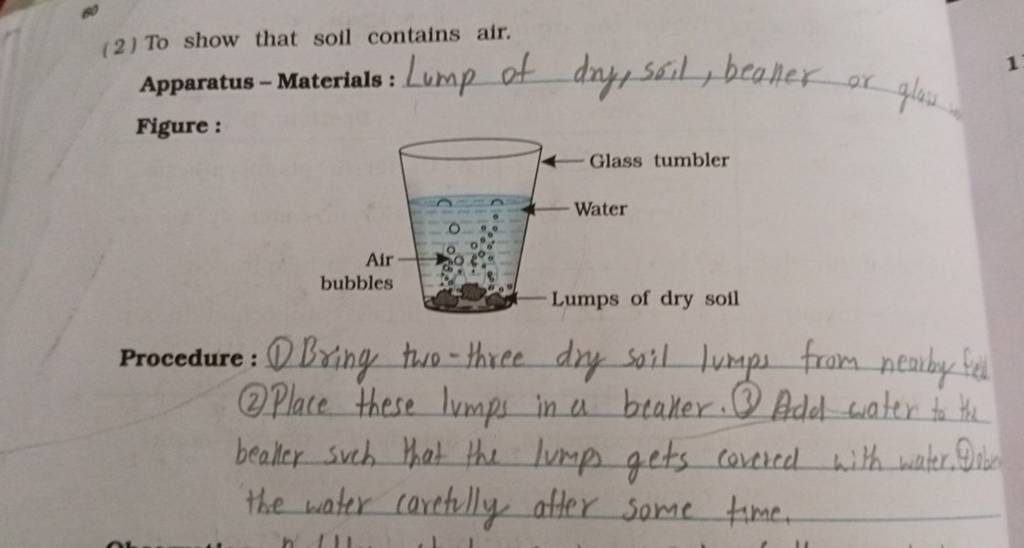 60
(2) To show that soil contains air.
Apparatus – Materials : Lump of dry, soil, beaker or glass
Figure :
Glass tumbler
Water
Air
bubbles
Lumps of dry soil
Procedure : ① Bring two-three dry soil lumps from nearby
② Place these lumps in a beaker. ③ Add water to the
beaker such that the lumps gets covered with water. ④
the water carefully after some time.